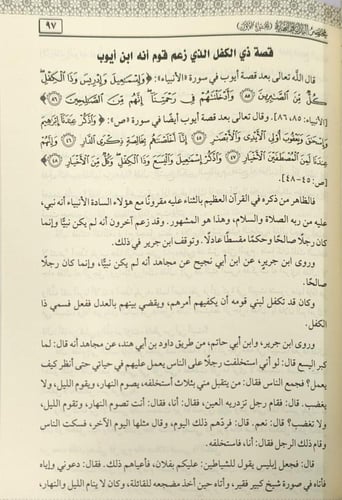 ٩٧
قصة ذي الكفل الذي زعم قوم أنه ابن أيوب
قال الله تعالى بعد قصة أيوب في سورة «الأنبياء»: ﴿وَإِسْمَاعِيلَ وَإِدْرِيسَ وَذَا الْكِفْلِ
كُلٌّ مِّنَ الصَّابِرِينَ ﴿٨٥﴾ وَأَدْخَلْنَاهُمْ فِي رَحْمَتِنَا إِنَّهُم مِّنَ الصَّالِحِينَ ﴿٨٦﴾﴾
[الأنبياء: ٨٥، ٨٦]. وقال تعالى بعد قصة أيوب أيضًا في سورة «ص»: ﴿وَاذْكُرْ عِبَادَنَا إِبْرَاهِيمَ
وَإِسْحَاقَ وَيَعْقُوبَ أُولِي الْأَيْدِي وَالْأَبْصَارِ ﴿٤٥﴾ إِنَّا أَخْلَصْنَاهُم بِخَالِصَةٍ ذِكْرَى الدَّارِ ﴿٤٦﴾ وَإِنَّهُمْ
عِندَنَا لَمِنَ الْمُصْطَفَيْنَ الْأَخْيَارِ ﴿٤٧﴾ وَاذْكُرْ إِسْمَاعِيلَ وَالْيَسَعَ وَذَا الْكِفْلِ وَكُلٌّ مِّنَ الْأَخْيَارِ ﴿٤٨﴾﴾
[ص: ٤٥-٤٨].
فالظاهر من ذكره في القرآن العظيم بالثناء عليه مقرونًا مع هؤلاء السادة الأنبياء أنه نبي،
عليه من ربه الصلاة والسلام، وهذا هو المشهور. وقد زعم آخرون أنه لم يكن نبيًّا وإنما
كان رجلًا صالحًا وحكمًا مقسطًا عادلًا. وتوقف ابن جرير في ذلك.
وروى ابن جرير، عن ابن أبي نجيح عن مجاهد أنه لم يكن نبيًّا، وإنما كان رجلًا
صالحًا.
وكان قد تكفل لبني قومه أن يكفيهم أمرهم، ويقضي بينهم بالعدل ففعل فسمي ذا
الكفل.
وروى ابن جرير، وابن أبي حاتم، من طريق داود بن أبي هند، عن مجاهد أنه قال: لما
كبر اليسع قال: لو أني استخلفت رجلًا على الناس يعمل عليهم في حياتي حتى أنظر كيف
يعمل؟ فجمع الناس فقال: من يتقبل مني بثلاث أستخلفه، يصوم النهار، ويقوم الليل، ولا
يغضب. قال: فقام رجل تزدريه العين، فقال: أنا، فقال: أنت تصوم النهار، وتقوم الليل،
ولا تغضب؟ قال: نعم. قال: فردّهم ذلك اليوم، وقال مثلها اليوم الآخر، فسكت الناس
وقام ذلك الرجل فقال: أنا، فاستخلفه.
قال: فجعل إبليس يقول للشياطين: عليكم بفلان، فأعياهم ذلك. فقال: دعوني وإياه
فأتاه في صورة شيخ كبير فقير، وأتاه حين أخذ مضجعه للقائلة، وكان لا ينام الليل والنهار،